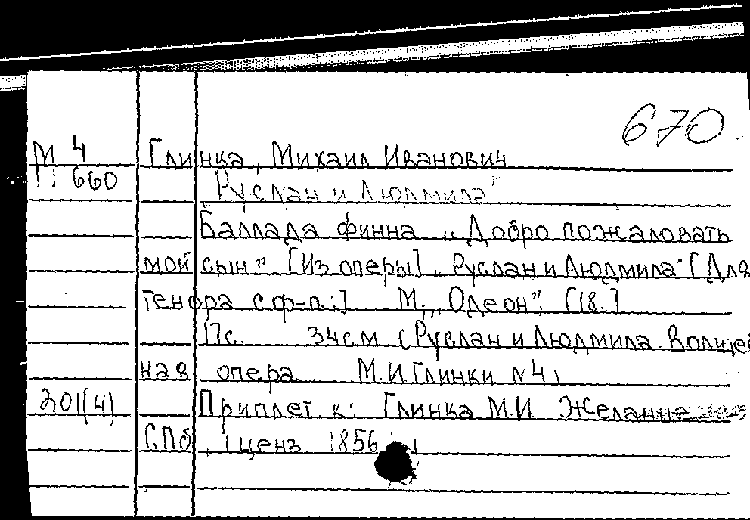 670
М 4 Глинка, Михаил Иванович
П 660 "Руслан и Людмила"
Баллада Финна „Добро пожаловать
мой сын" [Из оперы] „Руслан и Людмила" [Для
тенора с ф-п:] М., „Одеон", [18.]
17с. 34см (Руслан и Людмила. Волшеб
ная опера М.И Глинки №4)
301(4) Приплет. к: Глинка М.И Желание
СПб, ценз 1856